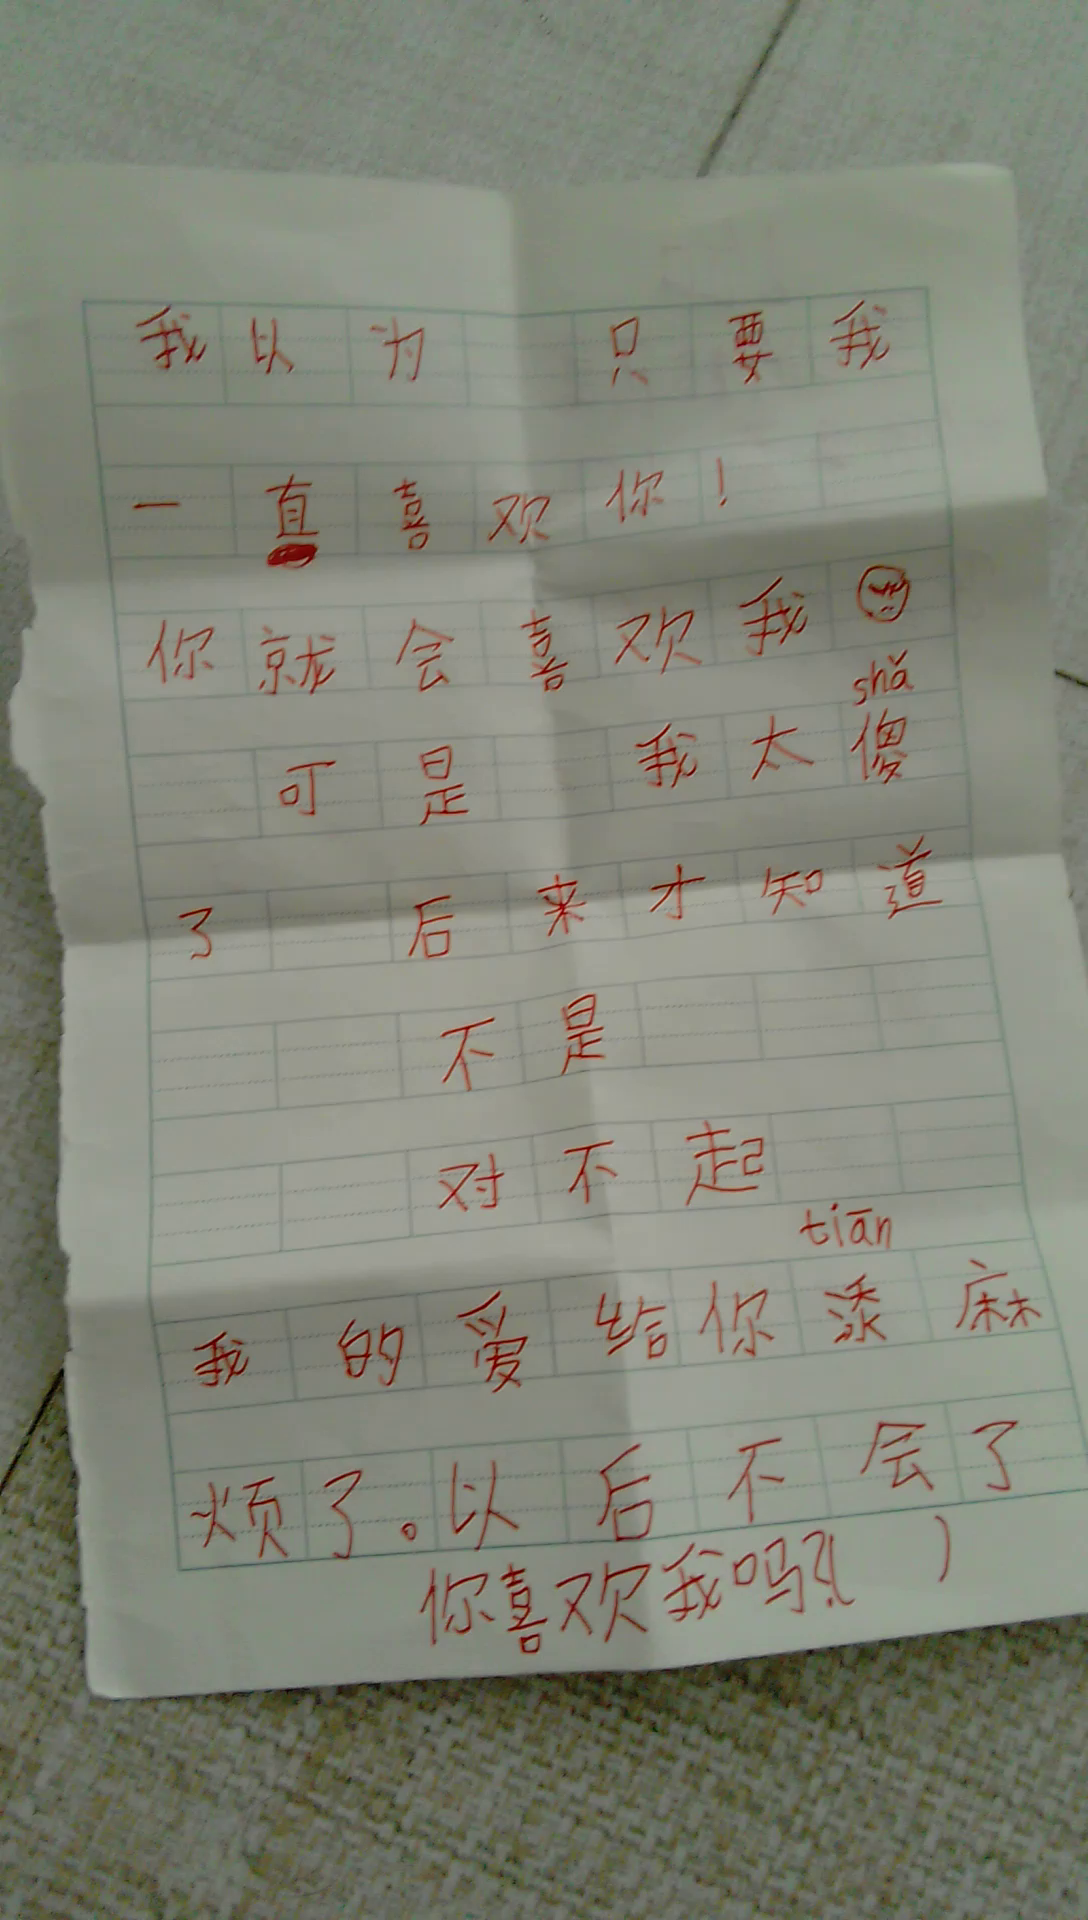 我以为 只要我
一直喜欢你!
你就会喜欢我
shǎ
可是 我太傻
了 后来才知道
不是
对不起
tiān
我的爱给你添麻
烦了。以后不会了
你喜欢我吗?( )